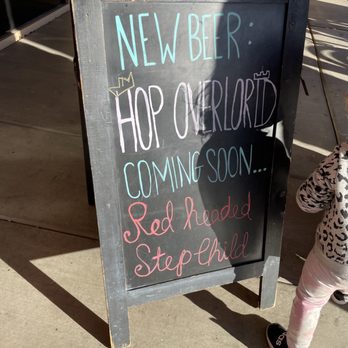 NEW BEER:
HOP OVERLORD
COMING SOON...
Red headed
Step Child